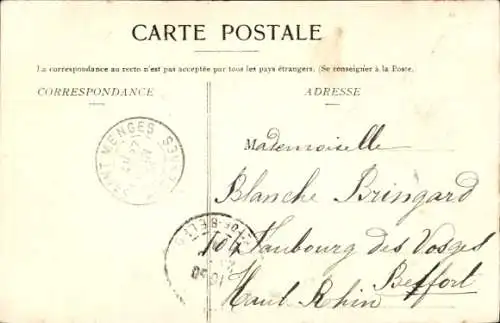 CARTE POSTALE
La correspondance au recto n'est pas acceptée par tous les pays étrangers. (Se renseigner à la Poste.
CORRESPONDANCE
ADRESSE
SAINT MENGES
Mademoiselle
Blanche Bringard
104 Faubourg des Vosges
Belfort
Haut Rhin